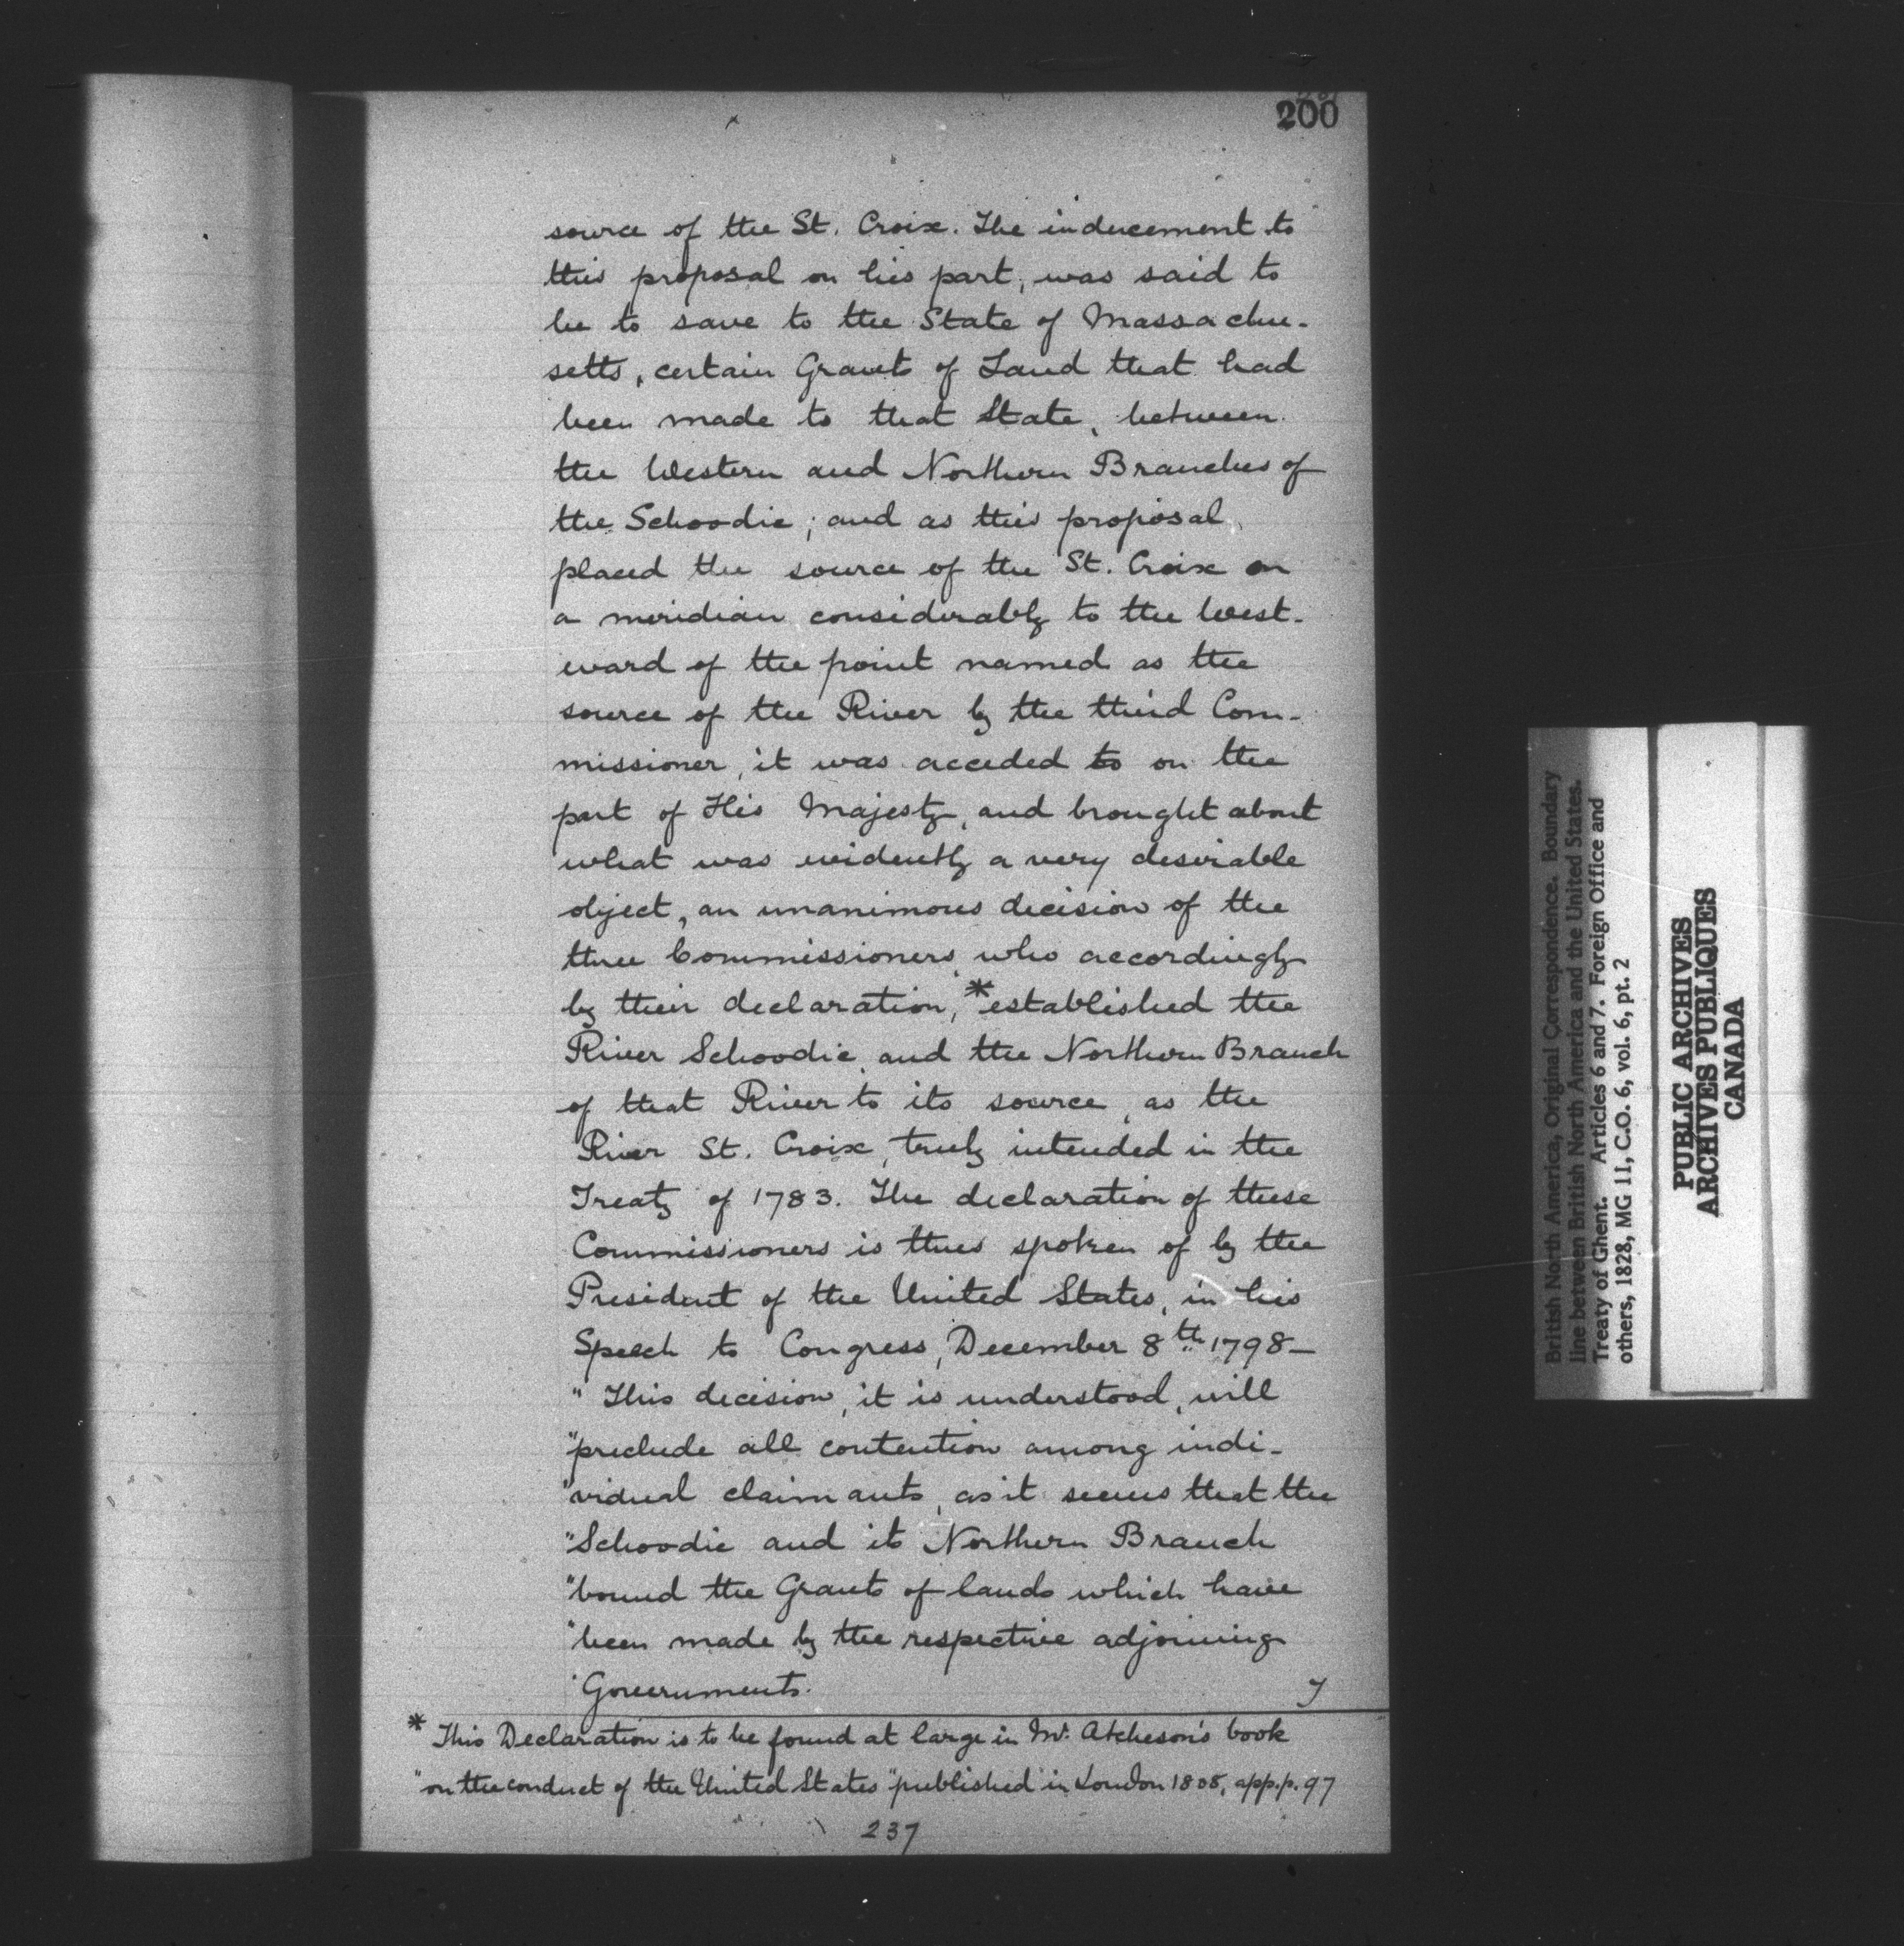 200
source of the St. Croix. The inducement to
this proposal on his part, was said to
be to save to the State of Massachu-
setts, certain Grants of Land that had
been made to that State, between
the Western and Northern Branches of
the Schoodic; and as this proposal
placed the source of the St. Croix on
a meridian considerably to the West-
ward of the point named as the
source of the River by the third Com-
missioner, it was acceded to on the
part of His Majesty, and brought about
what was evidently a very desirable
object, an unanimous decision of the
three Commissioners, who accordingly
by their declaration,* established the
River Schoodic, and the Northern Branch
of that River to its source, as the
River St. Croix, truly intended in the
Treaty of 1783. The declaration of these
Commissioners is thus spoken of by the
President of the United States, in his
Speech to Congress, December 8th 1798—
" This decision, it is understood, will
"preclude all contention among indi-
"vidual claimants, as it seems that the
"Schoodic and it Northern Branch
"bound the Grants of lands which have
"been made by the respective adjoining
"Governments.
* This Declaration is to be found at large in Mr. Atcheson's book
"on the conduct of the United States" published in London 1808, app. p. 97
237
British North America, Original Correspondence. Boundary
line between British North America and the United States.
Treaty of Ghent. Articles 6 and 7. Foreign Office and
others, 1828, MG 11, C.O. 6, vol. 6, pt. 2
PUBLIC ARCHIVES
ARCHIVES PUBLIQUES
CANADA